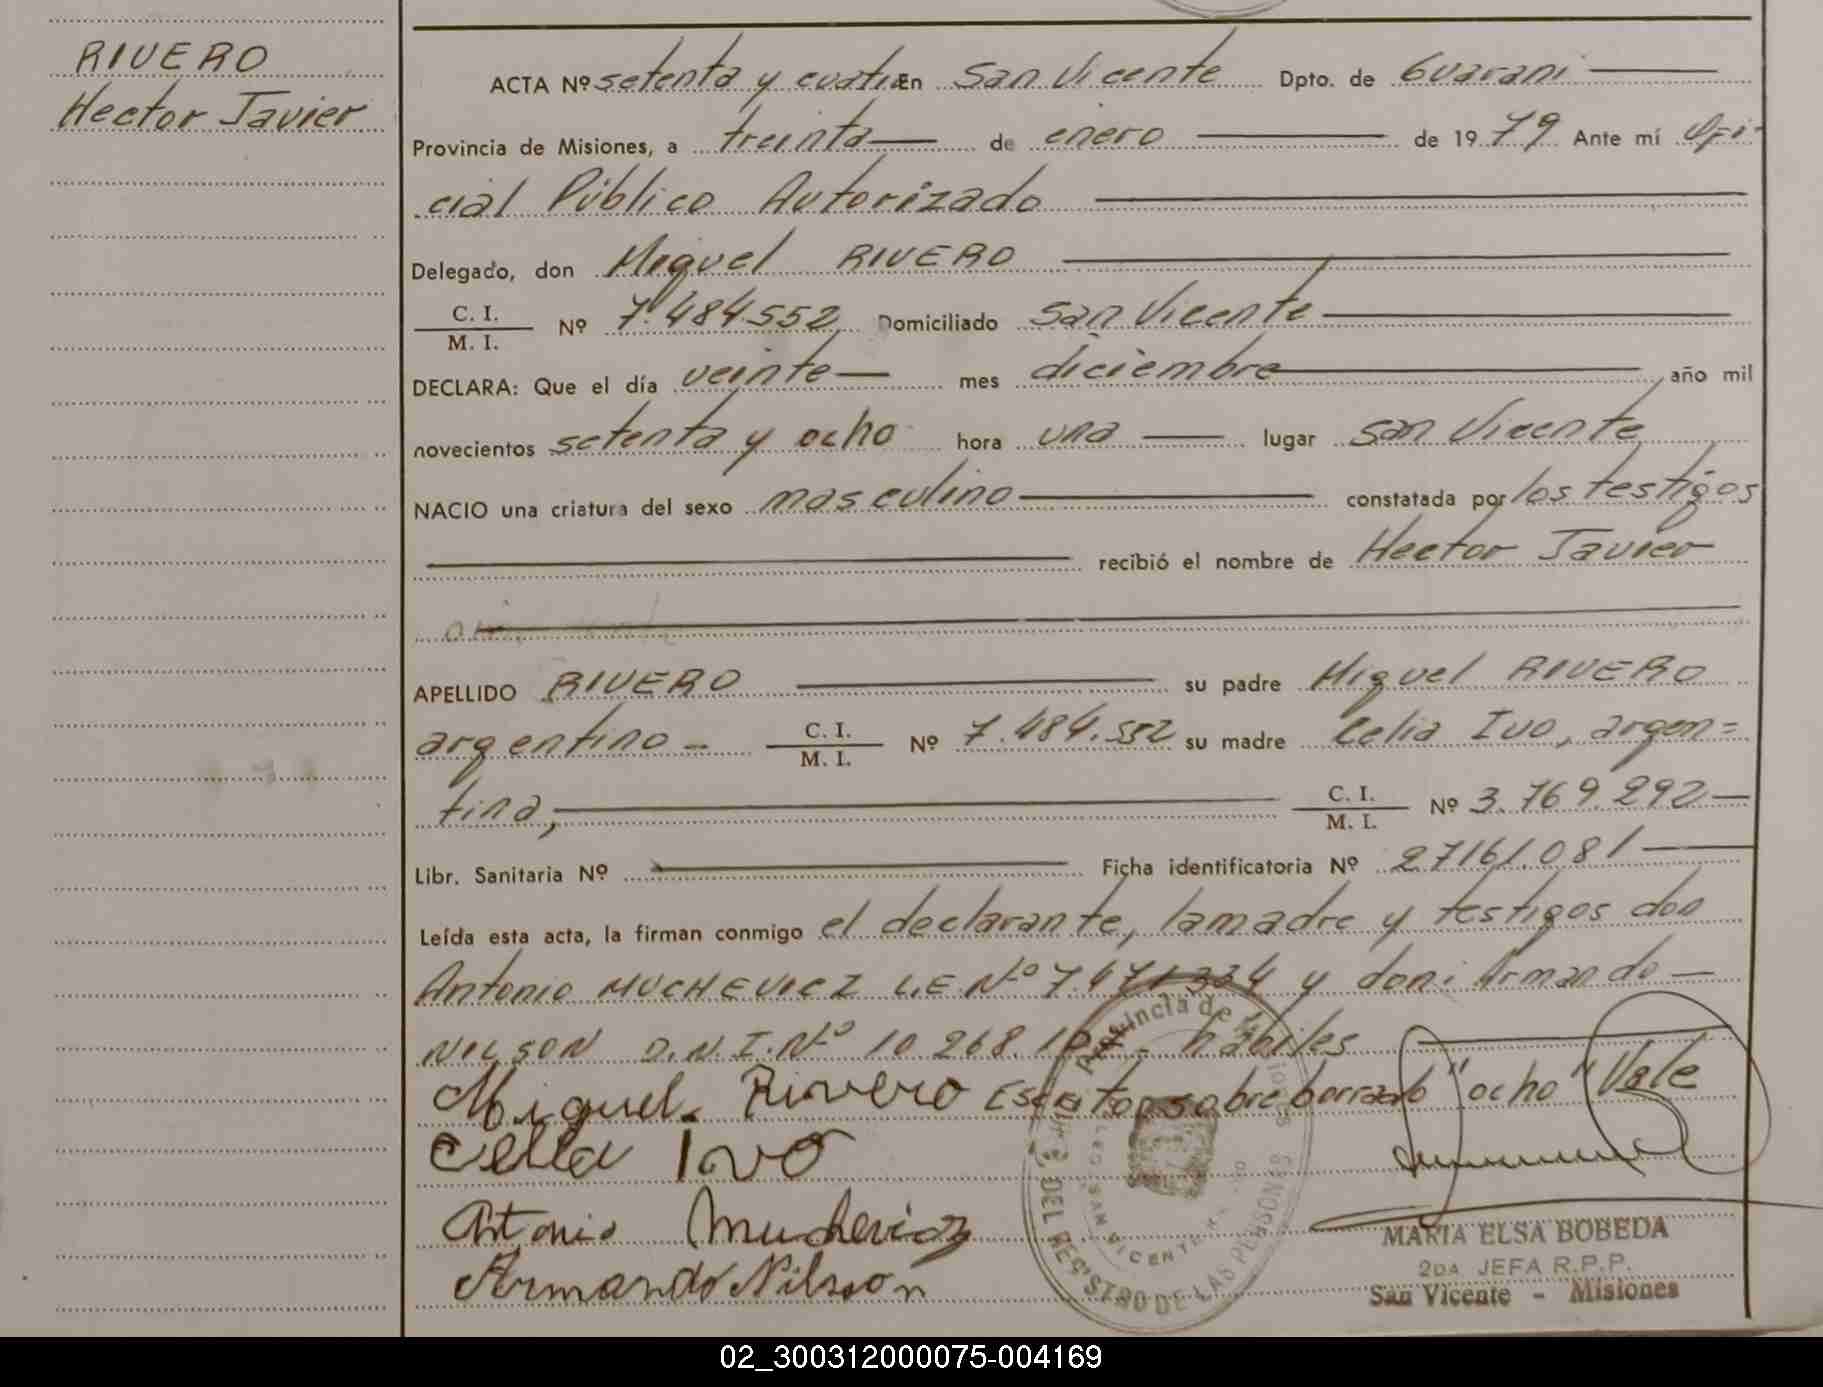 RIVERO
Hector Javier
ACTA Nº setenta y cuatro En San Vicente Dpto. de Guarani
Provincia de Misiones, a treinta de enero de 1979 Ante mí Ofi-
cial Público Autorizado
Delegado, don Miguel RIVERO
C. I.
M. I. Nº 7.484.552 Domiciliado San Vicente
DECLARA: Que el día veinte mes diciembre año mil
novecientos setenta y ocho hora una lugar San Vicente
NACIO una criatura del sexo masculino constatada por los testigos
recibió el nombre de Hector Javier
APELLIDO RIVERO su padre Miguel RIVERO
argentino - C. I.
M. I. Nº 7.484.552 su madre Celia Ivo, argen=
tina, C. I.
M. I. Nº 3.769.292
Libr. Sanitaria Nº Ficha identificatoria Nº 27161.081
Leída esta acta, la firman conmigo el declarante, la madre y testigos don
Antonio MUCHEVICZ L.E. Nº 7.471334 y don: Armando
NILSON D.N.I. Nº 10.268. hábiles
Miguel. Rivero Escrito sobre borrado "ocho" Vale
Celia Ivo
Antonio Muchevicz
Armando Nilsson
Provincia de Misiones
DEL REGISTRO DE LAS PERSONAS
SAN VICENTE
MARIA ELSA BOBEDA
2DA JEFA R.P.P.
San Vicente - Misiones
02_300312000075-004169